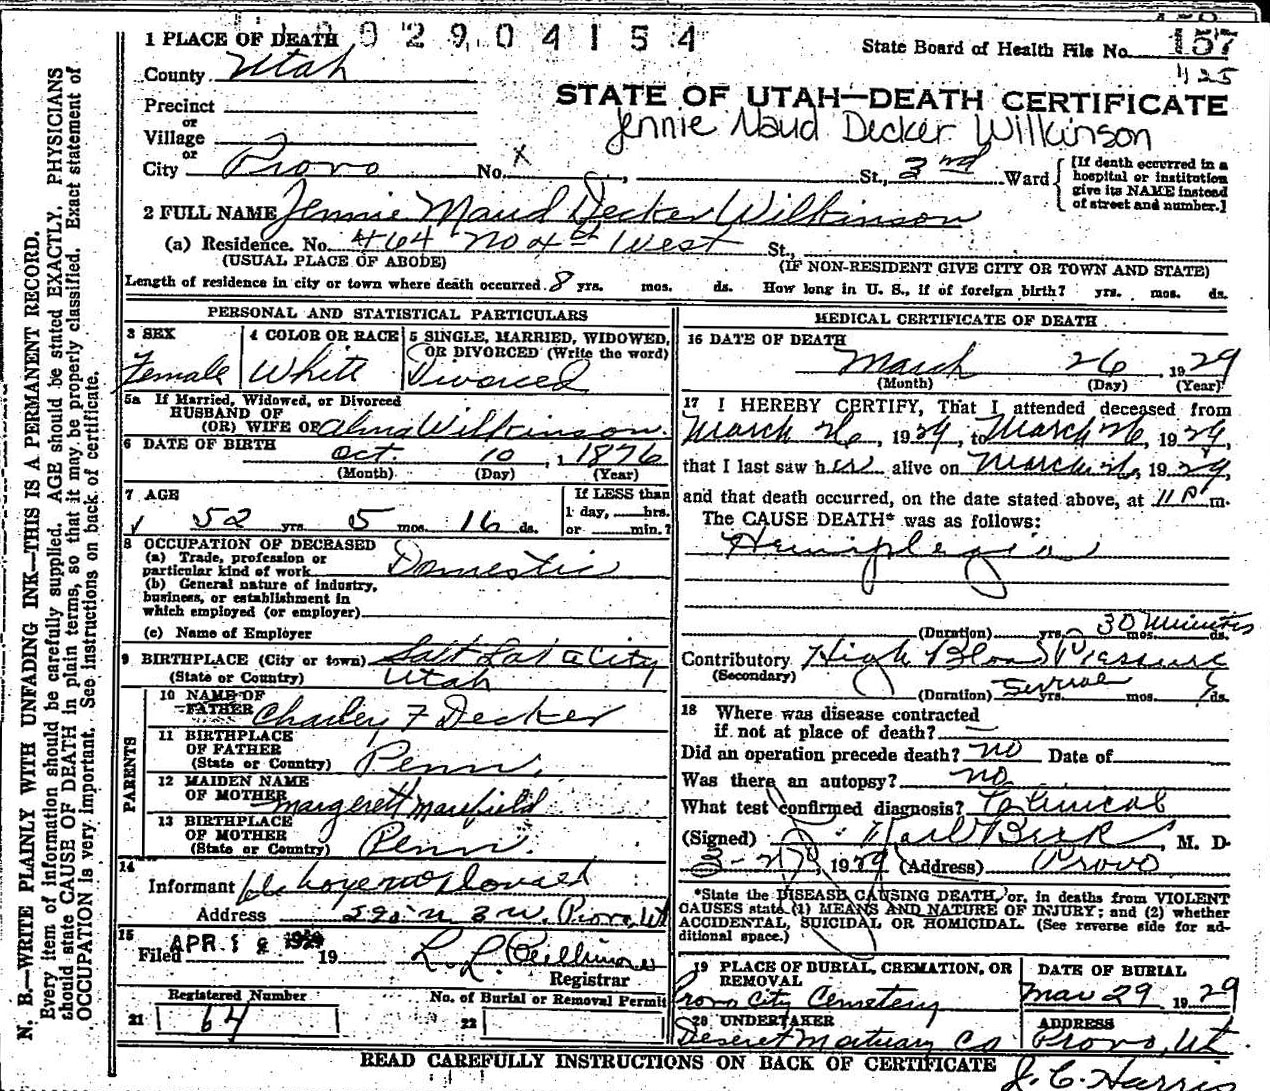 0 0 2 9 0 4 1 5 4
1 PLACE OF DEATH
State Board of Health File No. 157
1125
County Utah
STATE OF UTAH—DEATH CERTIFICATE
Precinct
or
Jennie Naud Decker Wilkinson
Village
or
City Provo No. X , St., 3rd Ward
[If death occurred in a
hospital or institution
give its NAME instead
of street and number.]
2 FULL NAME Jennie Maud Decker Wilkinson
(a) Residence. No. 464 No 4th West St.,
(USUAL PLACE OF ABODE) (IF NON-RESIDENT GIVE CITY OR TOWN AND STATE)
Length of residence in city or town where death occurred 8 yrs. mos. ds. How long in U. S., if of foreign birth? yrs. mos. ds.
PERSONAL AND STATISTICAL PARTICULARS
3 SEX
Female
4 COLOR OR RACE
White
5 SINGLE, MARRIED, WIDOWED,
OR DIVORCED (Write the word)
Divorced
5a If Married, Widowed, or Divorced
HUSBAND OF
(OR) WIFE OF Alma Wilkinson.
6 DATE OF BIRTH
Oct. 10, 1876
(Month) (Day) (Year)
7 AGE
52 yrs. 5 mos. 16 ds.
If LESS than
1 day, hrs.
or min.?
8 OCCUPATION OF DECEASED
(a) Trade, profession or
particular kind of work Domestic
(b) General nature of industry,
business, or establishment in
which employed (or employer)
(c) Name of Employer
9 BIRTHPLACE (City or town) Salt Lake City
(State or Country) Utah
PARENTS
10 NAME OF
FATHER Charley F Decker
11 BIRTHPLACE
OF FATHER
(State or Country) Penn.
12 MAIDEN NAME
OF MOTHER Margerett Maxfield
13 BIRTHPLACE
OF MOTHER
(State or Country) Penn.
14
Informant
Address 3 W. Provo, Ut
15
Filed APR 1 1929 19
L. L.
Registrar
Registered Number
21 64
No. of Burial or Removal Permit
22
MEDICAL CERTIFICATE OF DEATH
16 DATE OF DEATH
March 26 1929
(Month) (Day) (Year)
17 I HEREBY CERTIFY, That I attended deceased from
March 26, 1929, to March 26, 1929,
that I last saw her alive on March 26, 1929,
and that death occurred, on the date stated above, at 11 P m.
The CAUSE DEATH* was as follows:
Hemiplegia
(Duration) yrs. mos. ds. 30 minutes
Contributory High Blood Pressure
(Secondary)
(Duration) several yrs. mos. ds.
18 Where was disease contracted
if not at place of death? —
Did an operation precede death? no Date of
Was there an autopsy? no
What test confirmed diagnosis? Clinical
(Signed) Beck, M. D.
3-27, 1929 (Address) Provo
*State the DISEASE CAUSING DEATH, or, in deaths from VIOLENT
CAUSES state (1) MEANS AND NATURE OF INJURY; and (2) whether
ACCIDENTAL, SUICIDAL OR HOMICIDAL. (See reverse side for ad-
ditional space.)
19 PLACE OF BURIAL, CREMATION, OR
REMOVAL
Provo City Cemetery
DATE OF BURIAL
Mar 29 1929
20 UNDERTAKER
Deseret Mortuary Co
ADDRESS
Provo, Ut
READ CAREFULLY INSTRUCTIONS ON BACK OF CERTIFICATE
J. C. Harris
N. B.—WRITE PLAINLY WITH UNFADING INK—THIS IS A PERMANENT RECORD.
Every item of information should be carefully supplied. AGE should be stated EXACTLY. PHYSICIANS
should state CAUSE OF DEATH in plain terms, so that it may be properly classified. Exact statement of
OCCUPATION is very important. See instructions on back of certificate.